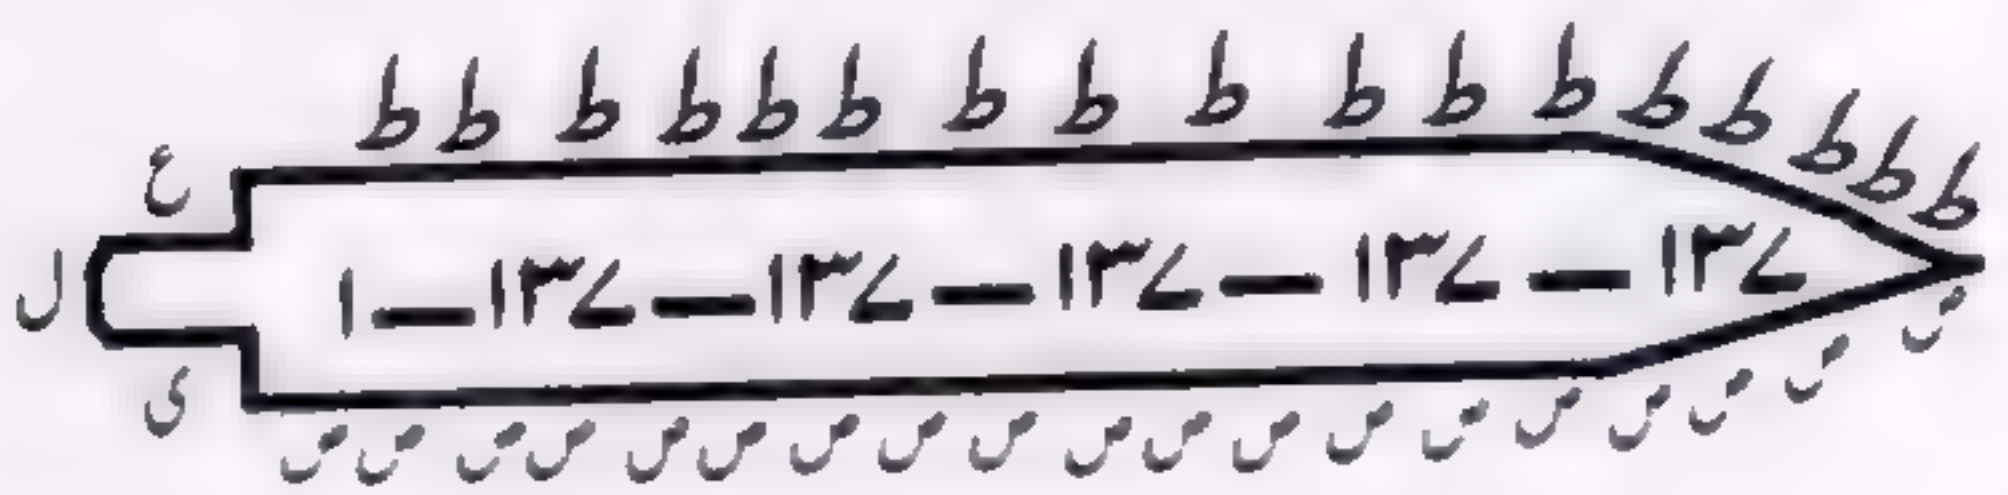 ط ط ط ط ط ط ط ط ط ط ط ط ط ط ط ط ط
ع
ل
ی
۱ — ۱۳۷ — ۱۳۷ — ۱۳۷ — ۱۳۷ — ۱۳۷
ص ص ص ص ص ص ص ص ص ص ص ص ص ص ص ص ص ص ص